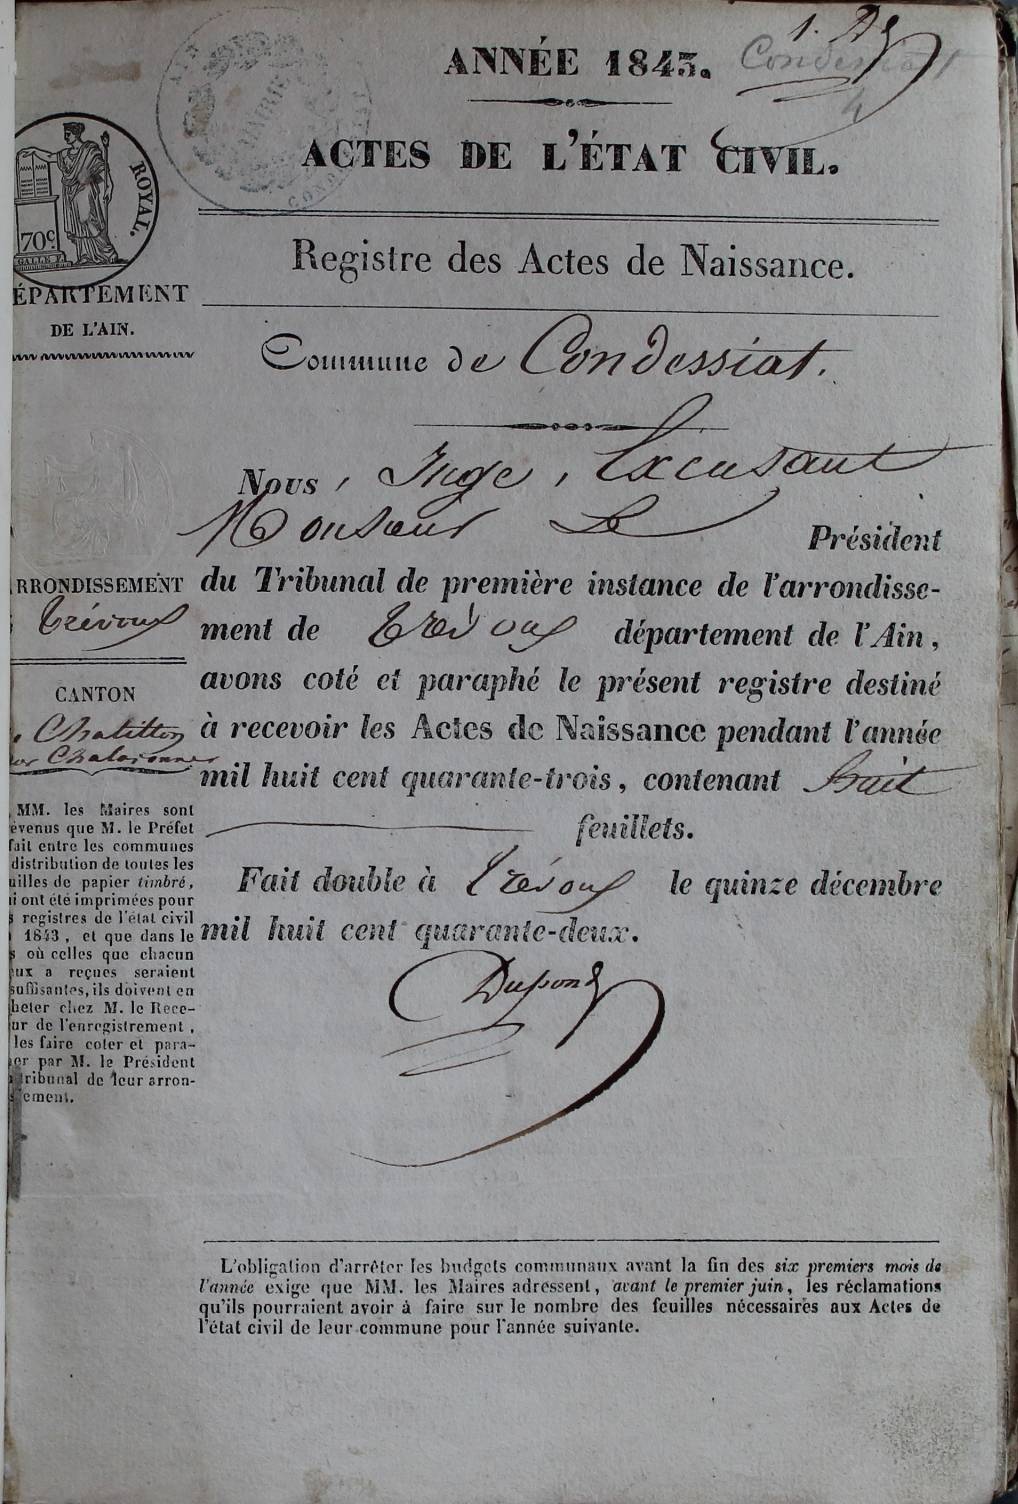 1. D
Condessiat
4
ANNÉE 1843.
ACTES DE L'ÉTAT CIVIL.
ROYAL.
70c.
Registre des Actes de Naissance.
ÉPARTEMENT
DE L'AIN.
Commune de Condessiat.
Nous, Juge, Excusant
Monsieur Le Président
RRONDISSEMENT
Trévoux
du Tribunal de première instance de l'arrondisse-
ment de Trévoux département de l'Ain,
avons coté et paraphé le présent registre destiné
à recevoir les Actes de Naissance pendant l'année
mil huit cent quarante-trois, contenant huit
feuillets.
Fait double à Trévoux le quinze décembre
mil huit cent quarante-deux.
Dupond
CANTON
Chatillon
sur Chalaronne
MM. les Maires sont
évenus que M. le Préfet
fait entre les communes
distribution de toutes les
uilles de papier timbré,
i ont été imprimées pour
s registres de l'état civil
1843, et que dans le
s où celles que chacun
eux a reçues seraient
suffisantes, ils doivent en
heter chez M. le Rece-
ur de l'enregistrement,
les faire coter et para-
er par M. le Président
tribunal de leur arron-
ement.
L'obligation d'arrêter les budgets communaux avant la fin des six premiers mois de
l'année exige que MM. les Maires adressent, avant le premier juin, les réclamations
qu'ils pourraient avoir à faire sur le nombre des feuilles nécessaires aux Actes de
l'état civil de leur commune pour l'année suivante.